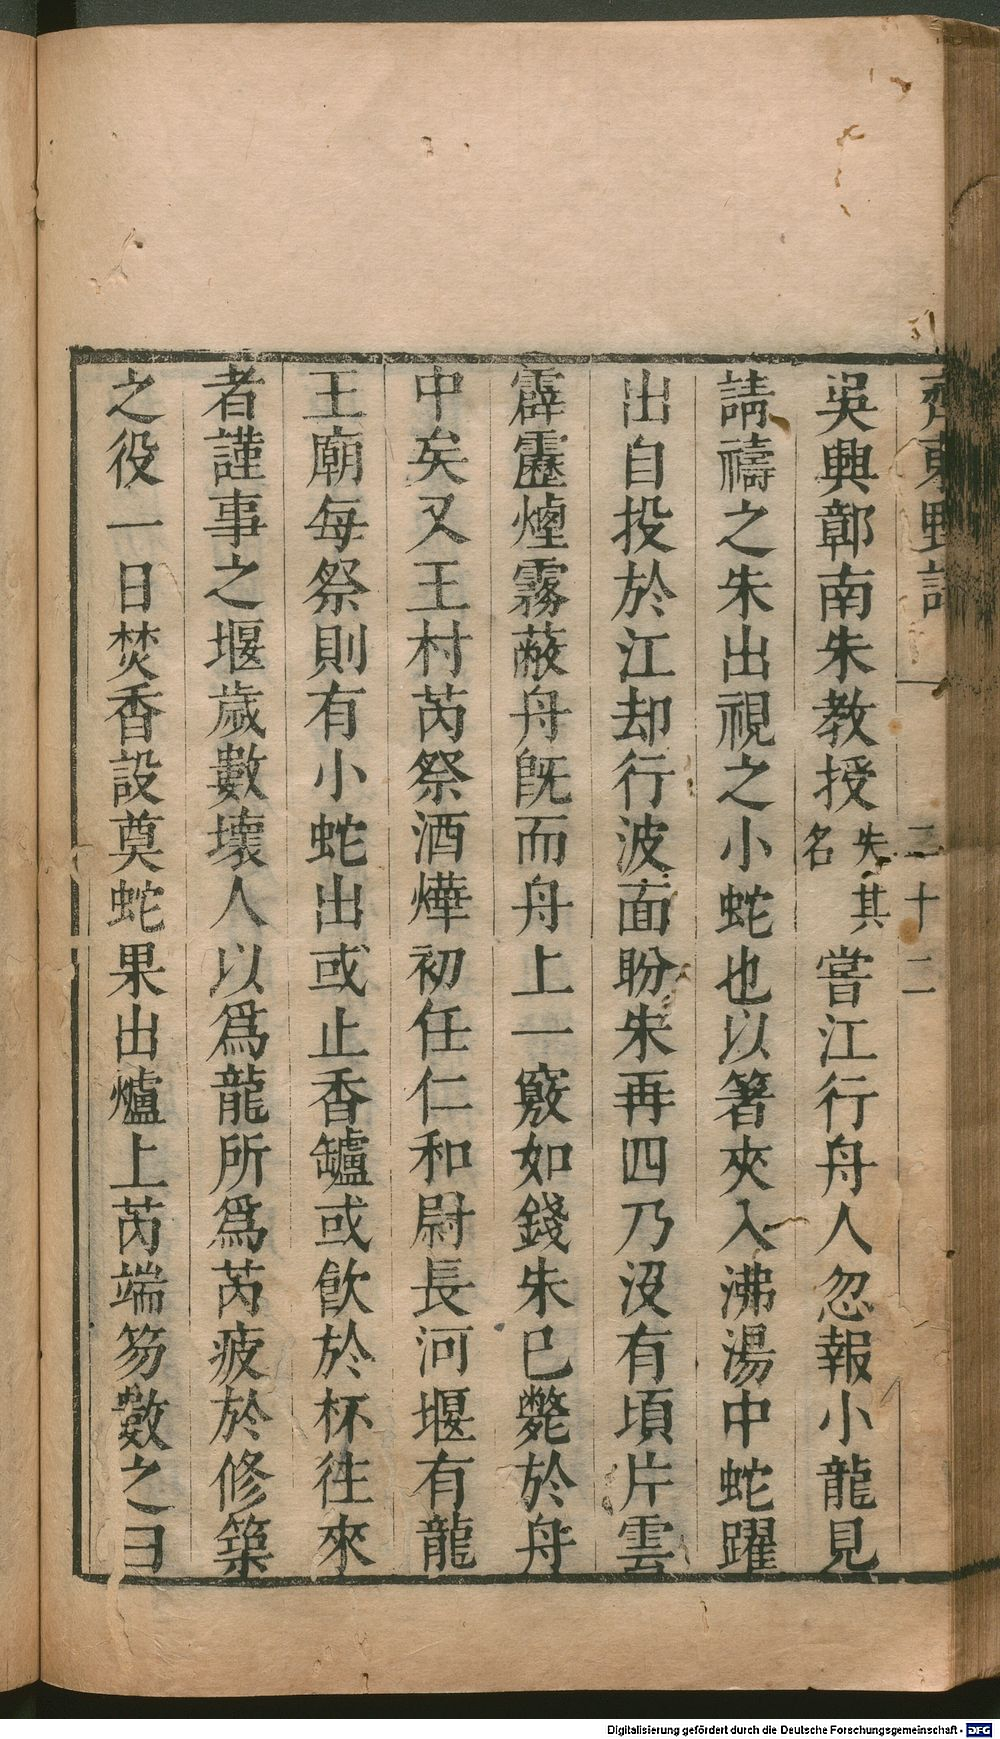 齊東野語 三十二
吳興鄣南朱教授失其名嘗江行舟人忽報小龍見
請禱之朱出視之小蛇也以箸夾入沸湯中蛇躍
出自投於江却行波面盼朱再四乃沒有頃片雲
霹靂煙霧蔽舟旣而舟上一竅如錢朱已斃於舟
中矣又王村芮祭酒燁初任仁和尉長河堰有龍
王廟每祭則有小蛇出或止香罏或飲於杯往來
者謹事之堰歲數壞人以爲龍所爲芮疲於修築
之役一日焚香設奠蛇果出爐上芮端笏數之曰
Digitalisierung gefördert durch die Deutsche Forschungsgemeinschaft - DFG